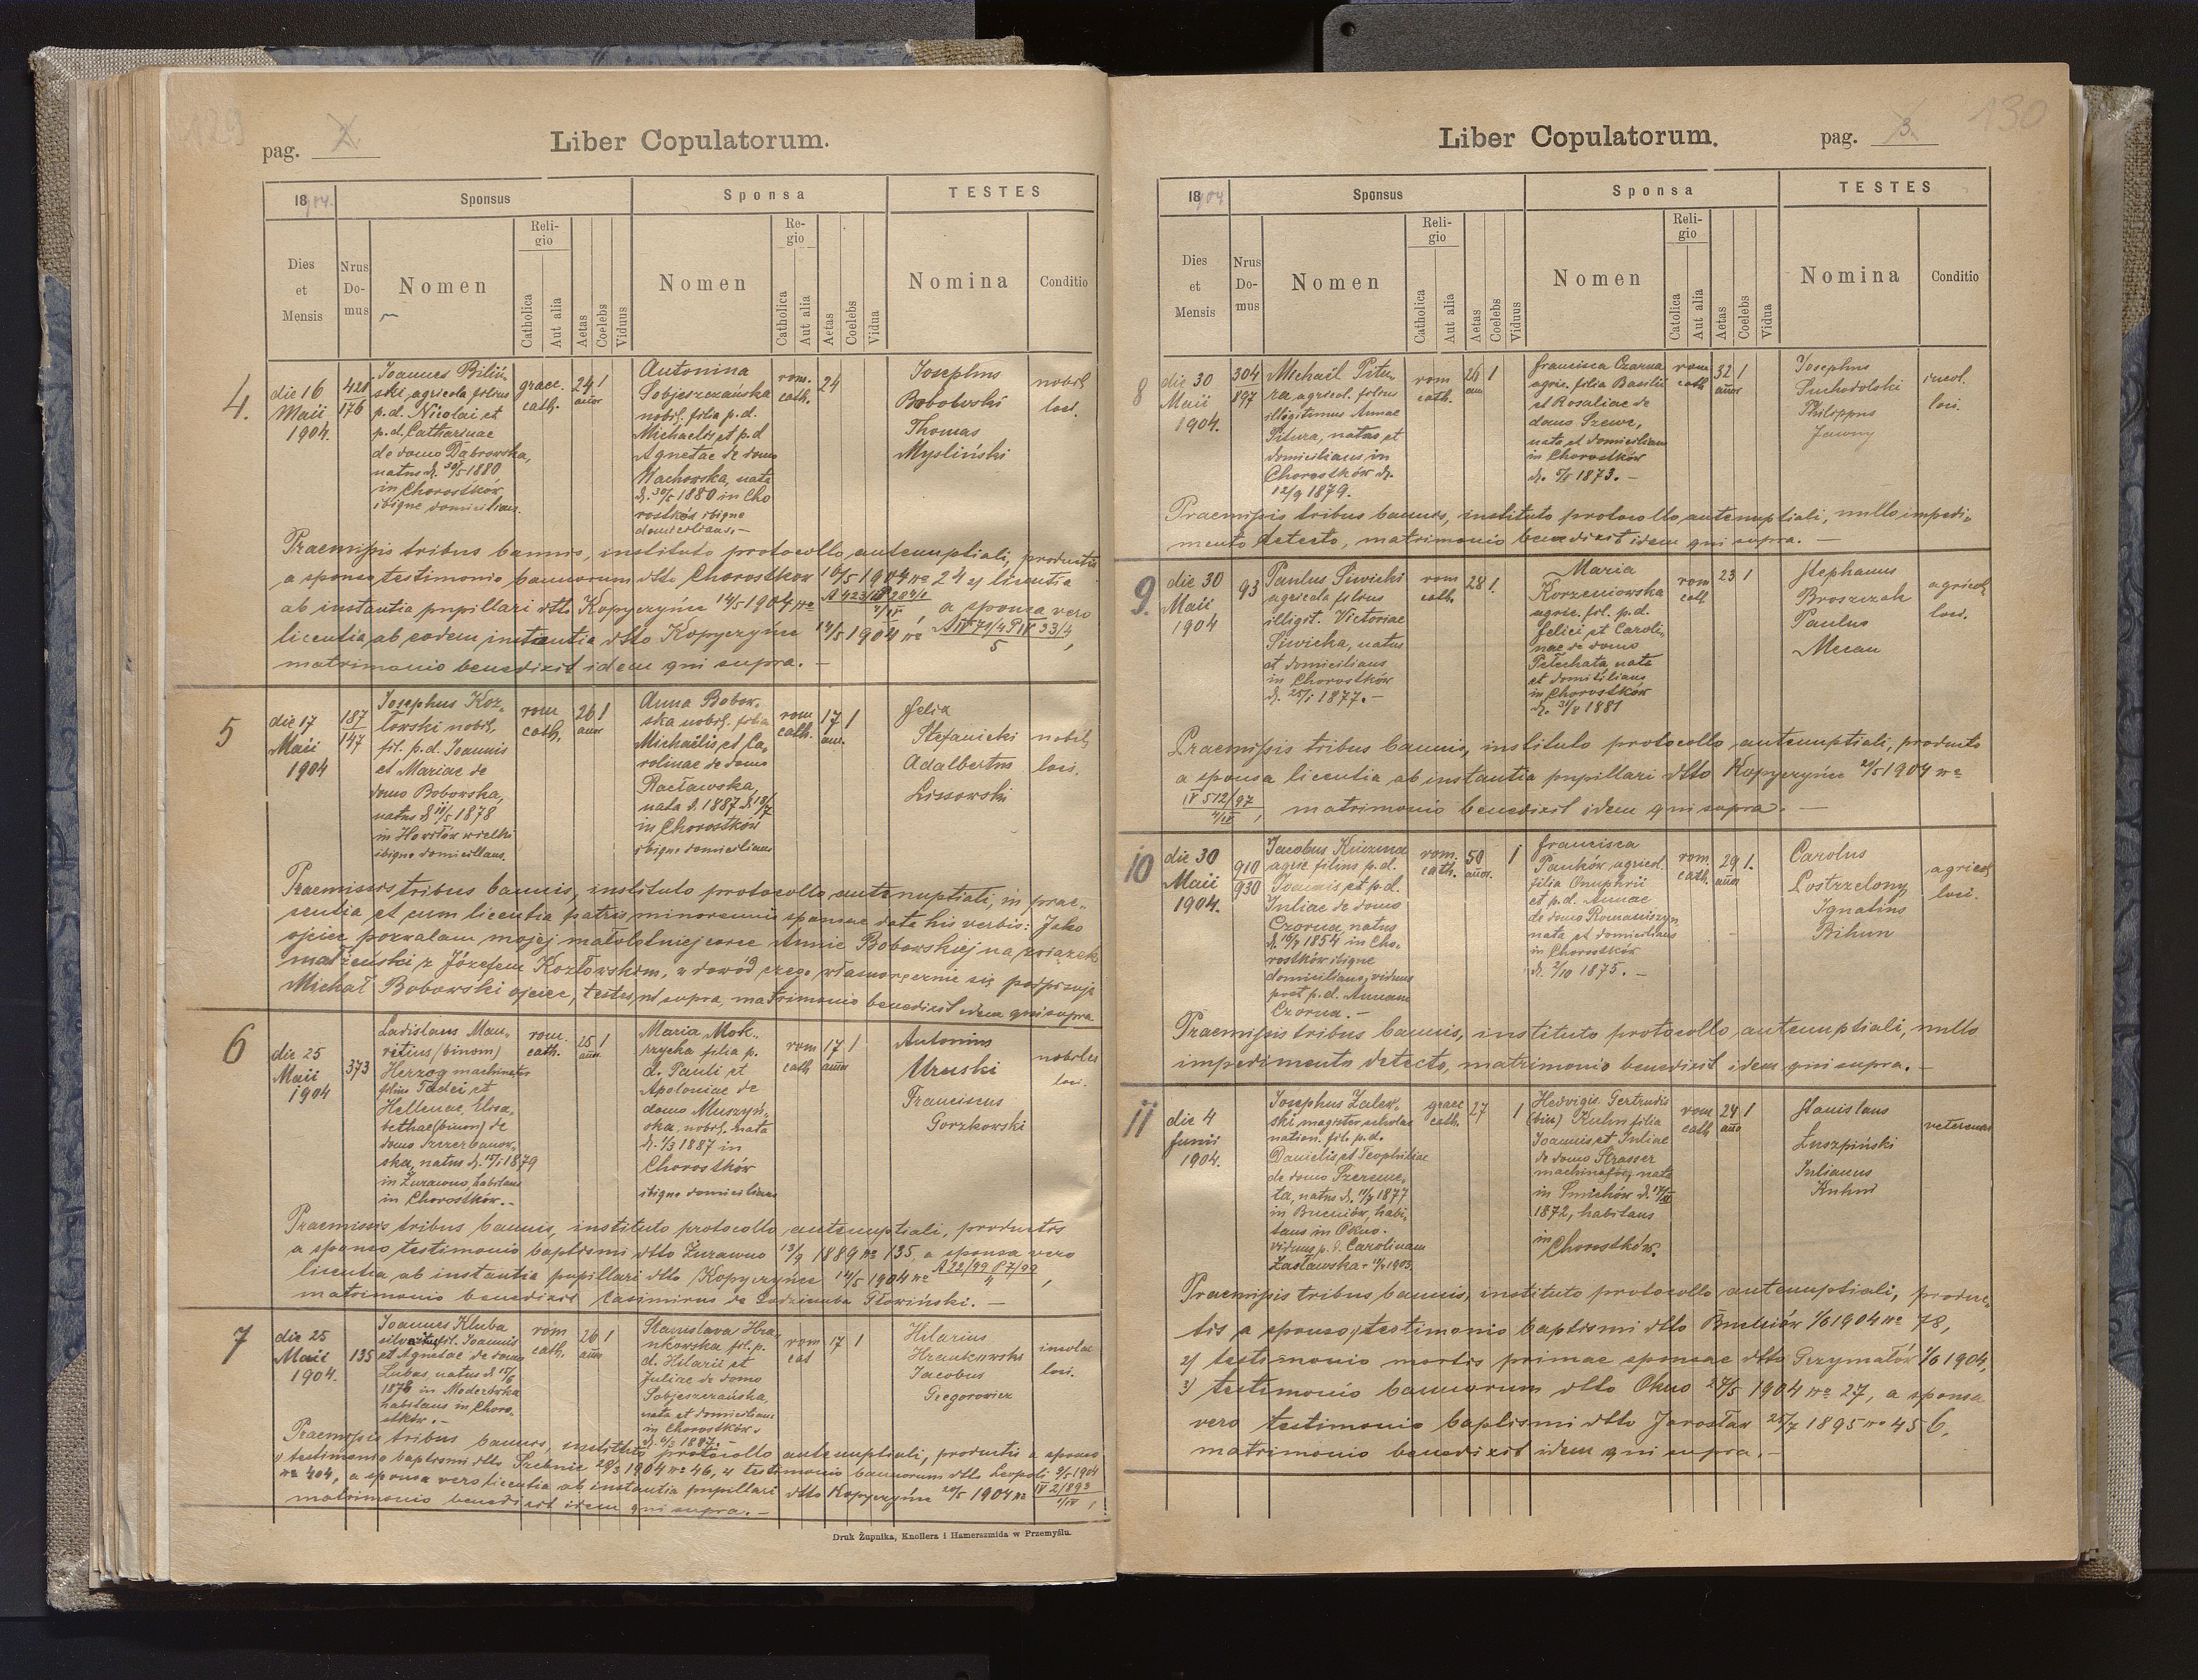 129
pag. 2.
Liber Copulatorum.
1904.
Sponsus
Sponsa
TESTES
Dies
et
Mensis
Nrus
Do-
mus
Nomen
Reli-
gio
Catholica
Aut alia
Aetas
Coelebs
Viduus
Nomen
Re-
gio
Catholica
Aut alia
Aetas
Coelebs
Vidua
Nomina
Conditio
4.
die 16
Maii
1904.
421
176
Joannes Biliń-
ski, agricola filius
p.d. Nicolai et
p.d. Catharinae
de domo Dąbrowska,
natus d. 30/5 1880
in Chorostków
ibique domicilians.
graec.
cath.
24
annor
1
Antonina
Sobjeszczańska
nobil. filia p.d.
Michaelis et p.d
Agnetae de domo
Wachowska, nata
d. 30/5 1880 in Cho
rostków ibique
domicilians. –
rom.
cath.
24
Josephus
Bobowski
Thomas
Mysliński
nobil.
loci.
Praemissis tribus bannis, instituto protocollo antenuptiali, productis
a sponso testimonio bannorum dtto Chorostkow 16/5 1904 No 24 et licentia
ab instantia pupillari dtto Kopyczyńce 14/5 1904 No
a sponsa vero
licentia ab eadem instantia dtto Kopyczyńce 14/5 1904 No A IV 71/4 P IV 33/4
5
matrimonio benedixit idem qui supra. –
5
die 17
Maii
1904
187
147
Josephus Koz-
łowski nobil.
fil. p.d. Joannis
et Mariae de
domo Bobowska,
natus d. 11/5 1878
in Howiłów wielki
ibique domicilians.
rom
cath.
26
annor
1
Anna Bobow-
ska nobil. filia
Michaëlis et Ca-
rolinae de domo
Racławska,
nata d. 1887 d. 18/7
in Chorostków
ibique domicilians
rom
cath.
17
ann.
1
Felix
Stefanicki
Adalbertus
Lissowski
nobil.
loci.
Praemissis tribus bannis, instituto protocollo antenuptiali, in prae-
sentia et cum licentia patris minorennis sponsae data his verbis: Jako
ojciec pozwalam mojej małoletniej córce Annie Bobowskiej na związek
małżeński z Józefem Kozłowskim, w dowód czego własnoręcznie się podpisuję
Michał Bobowski ojciec, testes ut supra, matrimonio benedixit idem qui supra
6
die 25
Maii
1904
373
Ladislaus Mau-
ritius (binom)
Herzog machinator
filius Tadei et
Hellenae, Elisa-
bethae (binom) de
domo Szczerbanow-
ska, natus d. 15/1 1879
in Żurawno, habitans
in Chorostków. –
rom.
cath.
25
ann.
1
Maria Mok-
rzycka filia p.
d. Pauli et
Apoloniae de
domo Muszyń-
ska, nobil. nata
d. 1/3 1887 in
Chorostków
ibique domicilians
rom
cath
17
annor
1
Antonius
Uruski
Franciscus
Gorzkowski
nobiles
loci.
Praemissis tribus bannis, instituto protocollo antenuptiali, productis
a sponso testimonio baptismi dtto Żurawno 13/9 1889 No 135, a sponsa vero
licentia ab instantia pupillari dtto Kopyczyńce 14/5 1904 No A 22/99 P 7/99
4
matrimonio benedixit Casimirus de Godziemba Głowiński. –
7
die 25
Maii
1904.
135
Joannes Kluba
fil. Joannis
et Agnetae de domo
Lubas, natus d. 15/6
1878 in Moderówka
habitans in Choro-
stków. –
rom
cath.
26
ann
1
Stanislava Hra-
nkowska fil. p.
d. Hilarii et
Juliae de domo
Sobjeszczańska,
nata et domicilians
in Chorostków
d. 6/3 1887. –
rom
cat
17
1
Hilarius
Hrankowski
Jacobus
Gregorowicz
incolae
loci.
Praemissis tribus bannis, instituto protocollo antenuptiali, productis a sponso
1) testimonio baptismi dtto Szebnie 28/3 1904 No 46, 2) testimonio bannorum dtto Leopoli 9/5 1904
No 404, a sponsa vero licentia ab instantia pupillari dtto Kopyczyńce 20/5 1904 No IV 2/893
matrimonio benedixit idem qui supra. –
Druk Żupnika, Knollera i Hamerszmida w Przemyślu.
130
Liber Copulatorum.
pag. 3.
1904
Sponsus
Sponsa
TESTES
Dies
et
Mensis
Nrus
Do-
mus
Nomen
Reli-
gio
Catholica
Aut alia
Aetas
Coelebs
Viduus
Nomen
Reli-
gio
Catolica
Aut alia
Aetas
Coelebs
Vidua
Nomina
Conditio
8
die 30
Maii
1904.
304
897
Michaël Pitu-
ra, agricol. filius
illigitimus Annae
Pitura, natus et
domicilians in
Chorostków d.
12/9 1879.
rom
cath.
26
ann
1
Francisca Czarna
agric. filia Basilii
et Rosaliae de
domo Szewc,
nata et domicilians
in Chorostków
d. 5/5 1873. –
rom
cath
32
annor
1
Josephus
Suchodolski
Philippus
Jawny
incol.
loci.
Praemissis tribus bannis, instituto protocollo antenuptiali, nullo impedi-
mento detecto, matrimonio benedixit idem qui supra. –
9.
die 30
Maii
1904
93
Paulus Siwicki
agricola filius
illigit. Victoriae
Siwicka, natus
et domicilians
in Chorostków
d. 25/1 1877. –
rom
cath.
28
1.
Maria
Korzeniowska
agric. fil. p.d.
Felici et Caroli-
nae de domo
Pełechata, nata
et domicilians
in Chorostków
d. 31/8 1881
rom
cath
23
1
Stephanus
Broszczak
Paulus
Mecan
agricol.
loci.
Praemissis tribus bannis, instituto protocollo antenuptiali, producto
a sponsa licentia ab instantia pupillari dtto Kopyczyńce 20/5 1904 No
IV 512/97
matrimonio benedixit idem qui supra. –
10
die 30
Maii
1904.
910
930
Jacobus Kuzma
agric. filius p.d.
Joannis et p.d.
Juliae de domo
Czorna, natus
1854 in Cho-
rostków ibique
domicilians, viduus
post p.d. Annam
Czorna. –
rom.
cath.
50
annor.
1
Francisca
Pańków agricol.
filia Onuphrii
et p.d. Annae
de domo Romaniszyn
nata et domicilians
in Chorostków
d. 2/10 1875. –
rom.
cath.
29
annor
1.
Carolus
Postrzelony
Ignatius
Bihun
agricol.
loci.
Praemissis tribus bannis, instituto protocollo antenuptiali, nullo
impedimento detecto, matrimonio benedixit idem qui supra. –
11
die 4
Junii
1904.
Josephus Zalew-
ski magister scholae
nation. fil. p.d.
Danielis et Teophiliae
de domo Szereme-
ta, natus d. 11/7 1877
in Bucniów, habi-
tans in Okno.
viduus p. d. Carolinam
Zasławska
graec
cath.
27
1
Hedvigis Gertrudis
(bin) Kuhn filia
Joannis et Juliae
de domo Strasser
nata
in Smichów
1872, habitans
in
Chorostków.
rom
cath
24
anno
1
Stanislaus
Łuszpiński
Julianus
Kuhn
Praemissis tribus bannis, instituto protocollo antenuptiali, produc-
tis a sponso 1) testimonio baptismi dtto Bucniów 1/6 1904 No 78,
2) testimonio mortis primae sponsae dtto Grzymałów 1/6 1904,
3) testimonio bannorum dtto Okno 27/5 1904 No 27, a sponsa
vero testimonio baptismi dtto Jarosław 25/7 1895 No 456,
matrimonio benedixit idem qui supra. –